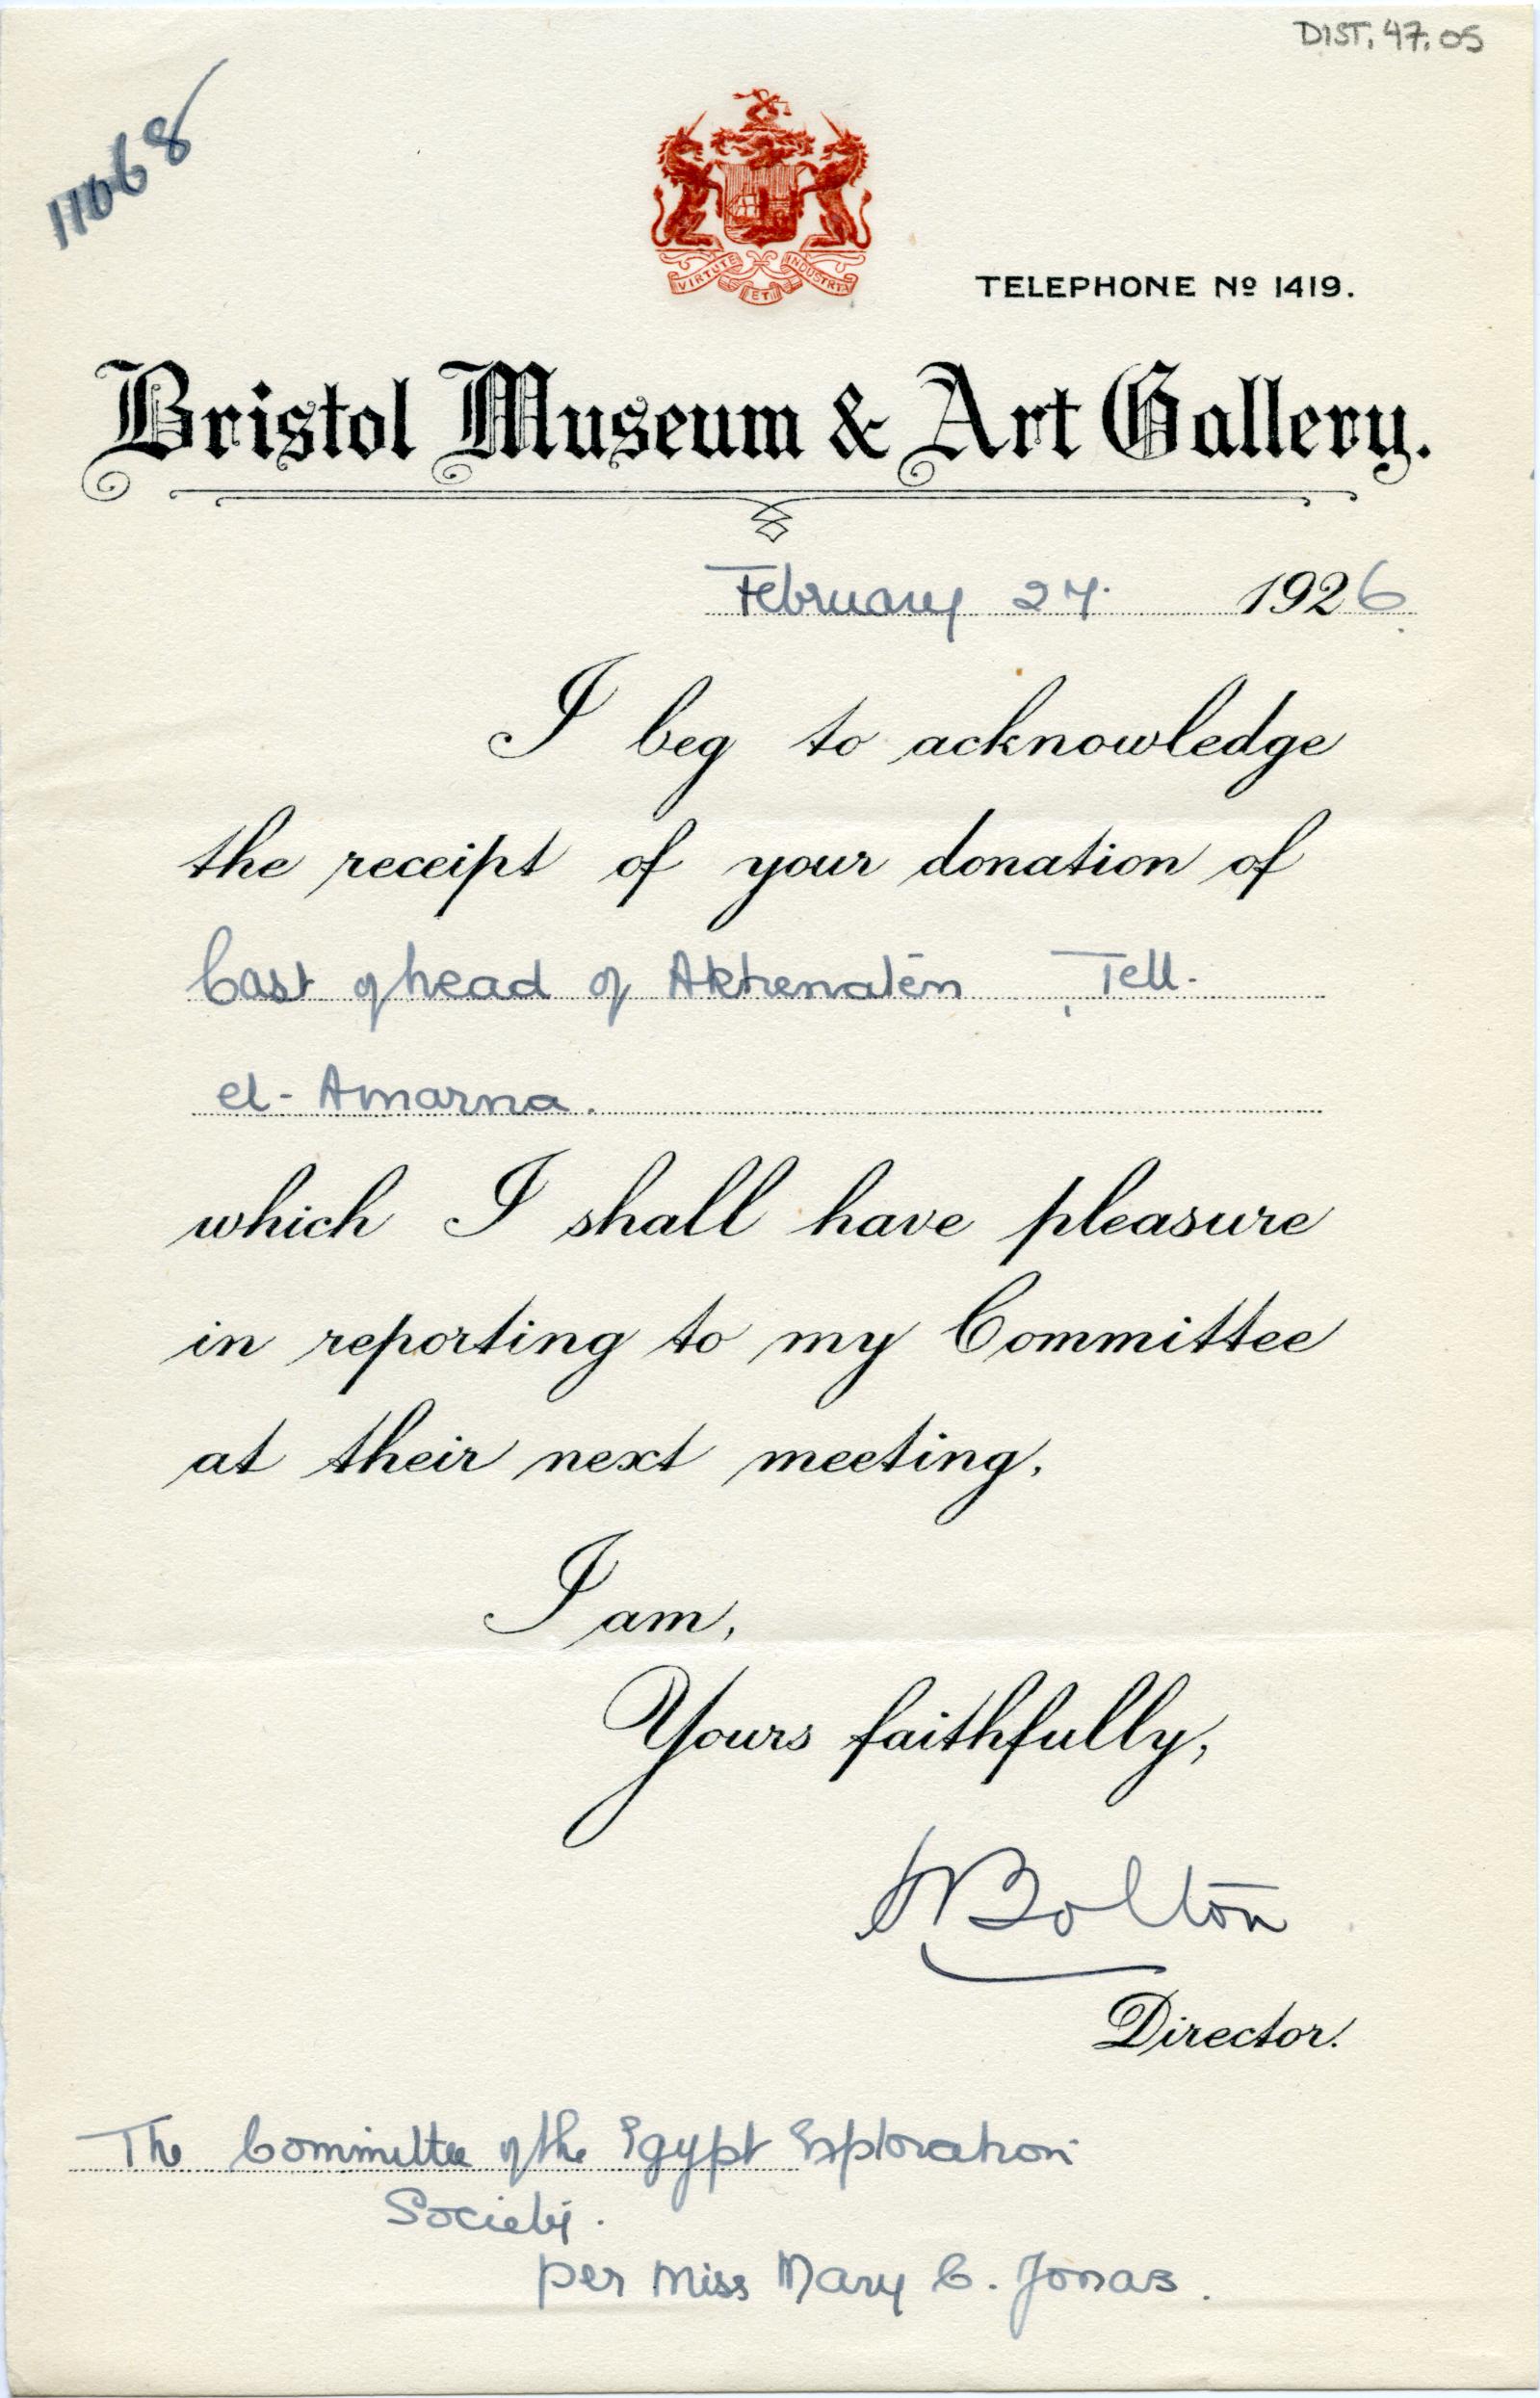 DIST. 47.05
11068
VIRTUTE ET INDUSTRIA
TELEPHONE Nº 1419.
Bristol Museum & Art Gallery.
February 27. 1926.
I beg to acknowledge
the receipt of your donation of
Cast of head of Akhenatēn, Tell-
el-Amarna.
which I shall have pleasure
in reporting to my Committee
at their next meeting.
I am,
Yours faithfully,
H Bolton
Director.
The Committee of the Egypt Exploration
Society.
per Miss Mary C. Jonas.